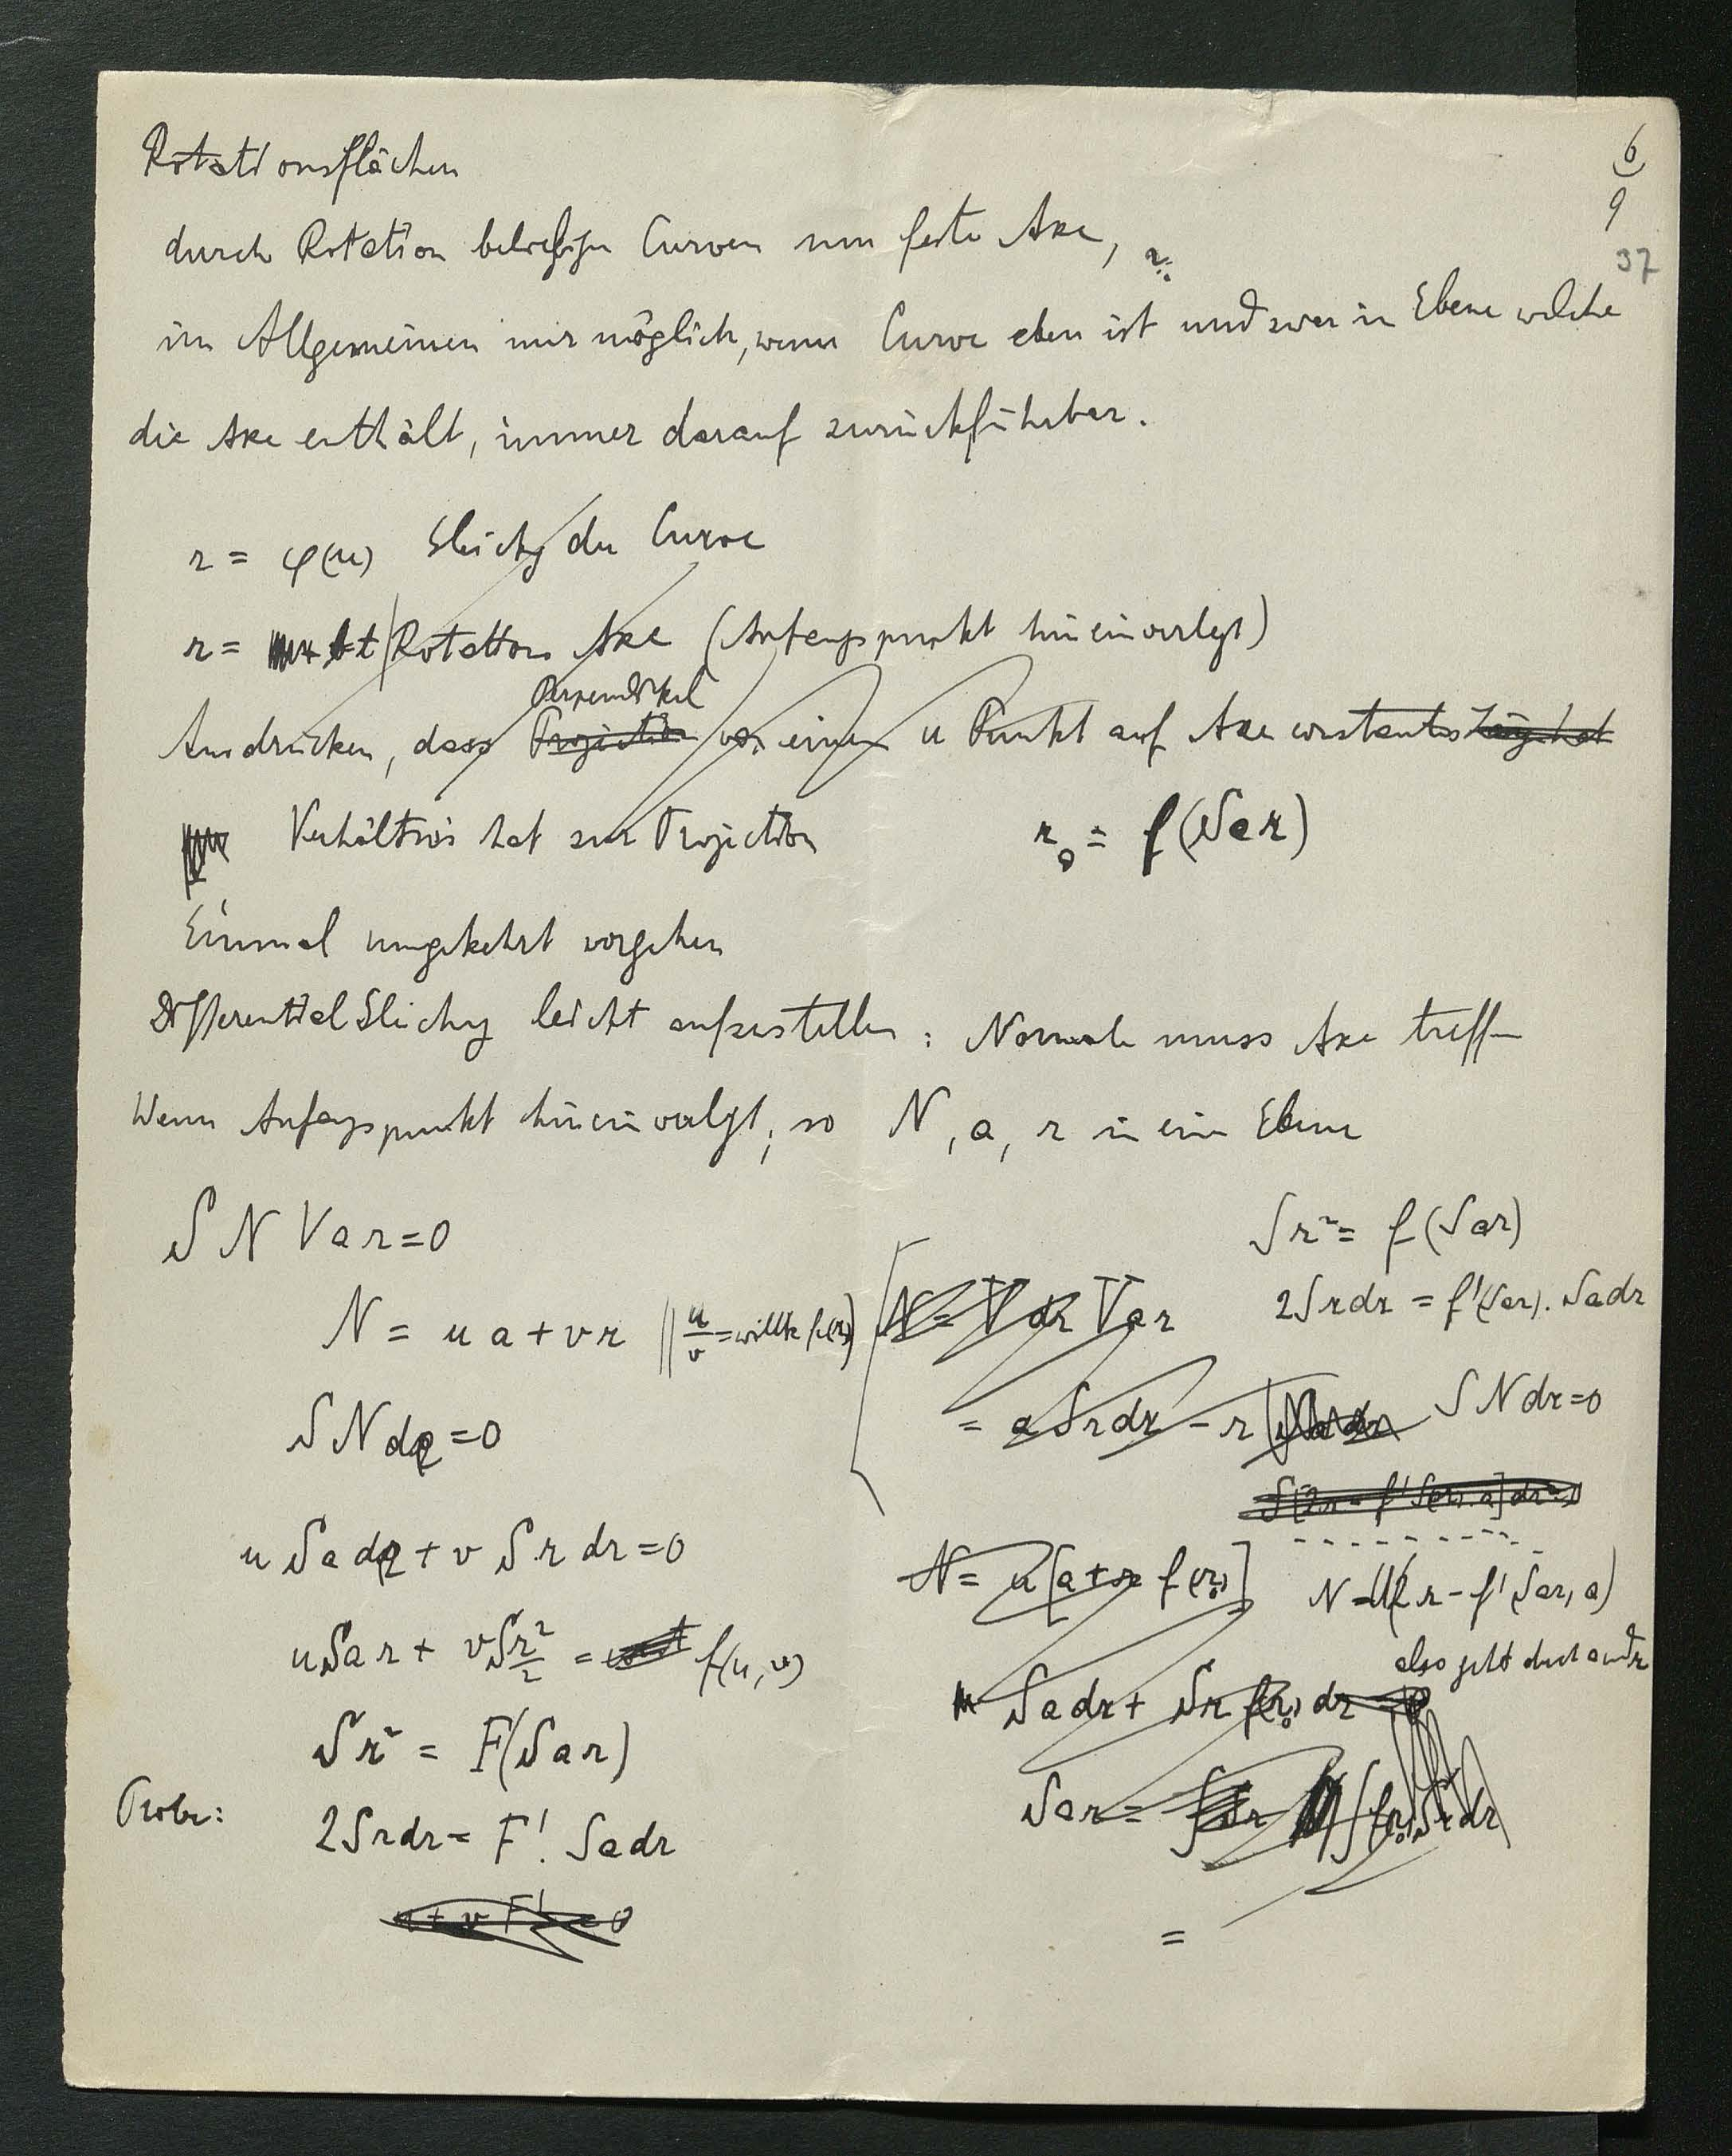 Rotationsflächen
6
9
37
durch Rotation beliebiger Curven um feste Axe,
im Allgemeinen nur möglich, wenn Curve eben ist und zwar in Ebene welche
die Axe enthält, immer darauf zurückführbar.
r = φ(u) Gleichg der Curve
r = bt Rotations Axe (Anfangspunkt hineinverlegt)
Perpendikel
Ausdrücken, dass Projection von einem u Punkt auf Axe constantes Länge hat
Verhältnis hat zur Projection
r₀ = f(Sar)
Einmal umgekehrt vorgehen
Differential Gleichg leicht aufzustellen : Normale muss Axe treffen
Wenn Anfangspunkt hineinverlegt, so N, a, r in einer Ebene
S N Var = 0
N = ua + vr || u/v = willk f(r₀)
S N dr = 0
u S a dr + v S r dr = 0
u Sar + v Sr²/2 = const f(u, v)
Sr² = F(Sar)
Probe: 2Srdr = F'. Sadr
u + v F' = 0
Sr² = f(Sar)
2Srdr = f'(Sar). Sadr
N = V dr Var
= a Srdr - r Sadr
S N dr = 0
S[2r - f'(Sar). a] dr = 0
N = u [a + r f(r₀)]
N = u(2r - f'(Sar) a)
also geht durch a und r
Sadr + Sr f(r₀) dr = 0
Sar = ∫ f(r₀) Srdr
=